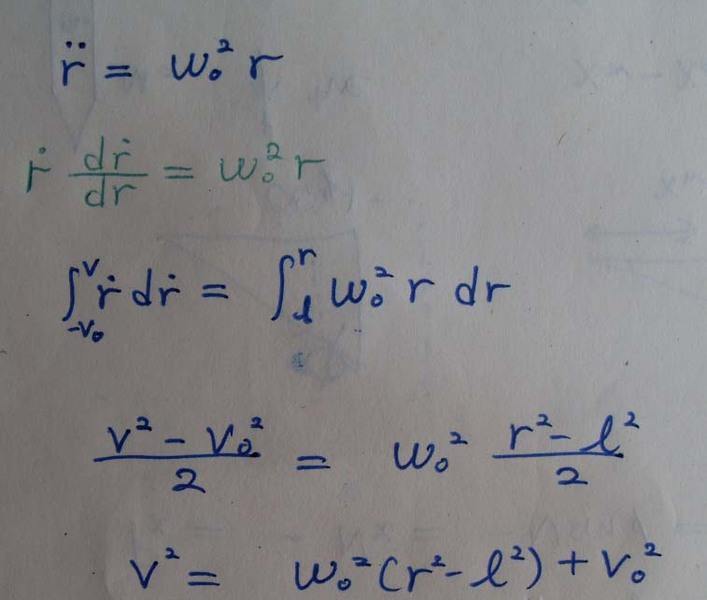 r̈ = w₀² r
ṙ dṙ/dr = w₀² r
∫_{-v₀}^{v} ṙ dṙ = ∫_{l}^{r} w₀² r dr
(v² - v₀²)/2 = w₀² (r² - l²)/2
v² = w₀² (r² - l²) + v₀²